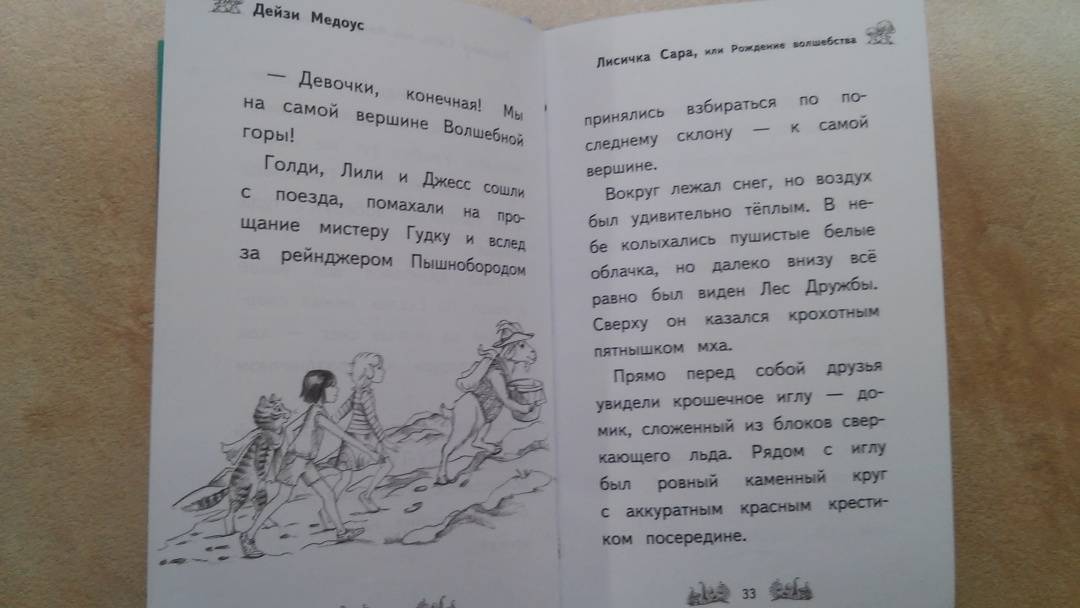 Дейзи Медоус
— Девочки, конечная! Мы
на самой вершине Волшебной
горы!
Голди, Лили и Джесс сошли
с поезда, помахали на про-
щание мистеру Гудку и вслед
за рейнджером Пышнобородом
Лисичка Сара, или Рождение волшебства
принялись взбираться по по-
следнему склону — к самой
вершине.
Вокруг лежал снег, но воздух
был удивительно тёплым. В не-
бе колыхались пушистые белые
облачка, но далеко внизу всё
равно был виден Лес Дружбы.
Сверху он казался крохотным
пятнышком мха.
Прямо перед собой друзья
увидели крошечное иглу — до-
мик, сложенный из блоков свер-
кающего льда. Рядом с иглу
был ровный каменный круг
с аккуратным красным крести-
ком посередине.
33